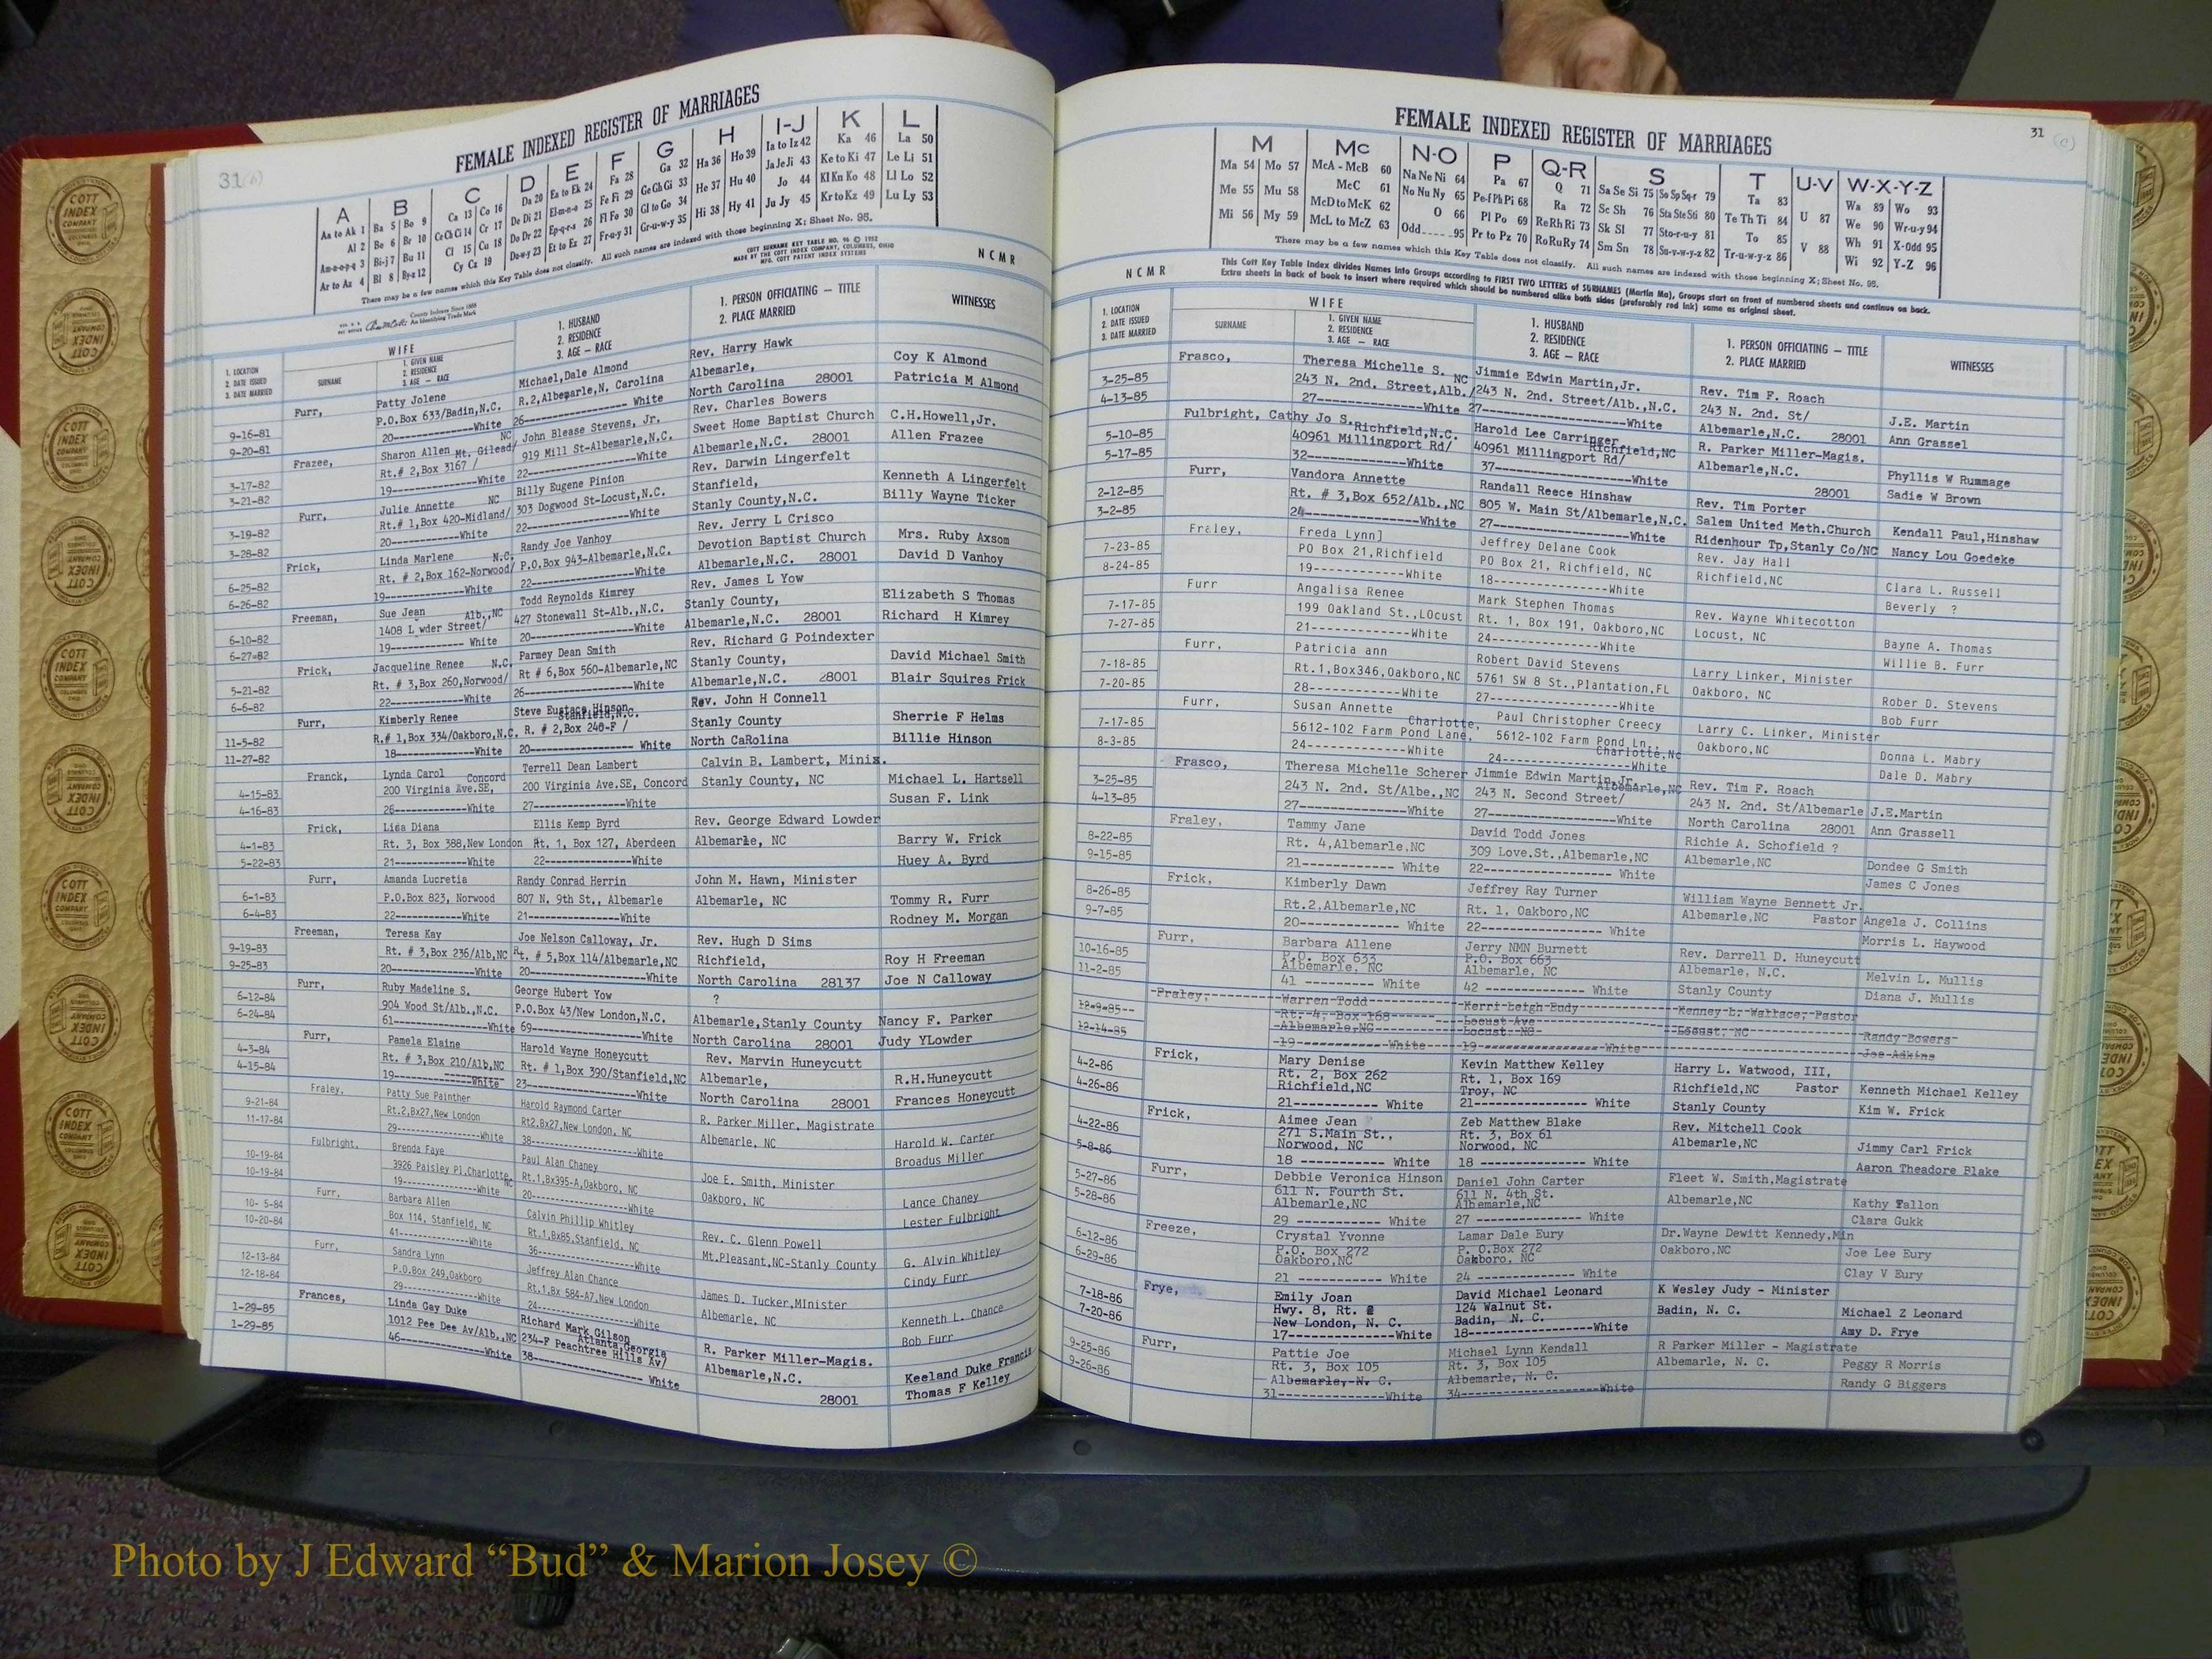 31(b)
FEMALE INDEXED REGISTER OF MARRIAGES
A B C D E F G H I-J K L
Aa to Ak 1 Ba 5 Bo 9 Ca 13 Co 16 Da 20 Ea to Ek 24 Fa 28 Ga 32 Ha 36 Ho 39 Ia to Iz 42 Ka 46 La 50
Al 2 Be 6 Br 10 Ce Ch Ci 14 Cr 17 De Di 21 El-m-n-o 25 Fe Fi 29 Ge Gh Gi 33 He 37 Hu 40 Ja Je Ji 43 Ke to Ki 47 Le Li 51
Am-n-o-p-q 3 Bi-j 7 Bu 11 Cl 15 Cu 18 Do Dr 22 Ep-q-r-s 26 Fl Fo 30 Gl to Go 34 Hi 38 Hy 41 Jo 44 Kl Kn Ko 48 Ll Lo 52
Ar to Az 4 Bl 8 By-z 12 Cy Cz 19 Du-w-y 23 Et to Ez 27 Fr-u-y 31 Gr-u-w-y 35 Ju Jy 45 Kr to Kz 49 Lu Ly 53
There may be a few names which this Key Table does not classify. All such names are indexed with those beginning X; Sheet No. 95.
COTT SURNAME KEY TABLE NO. 96 © 1952
MADE BY THE COTT INDEX COMPANY, COLUMBUS, OHIO
MFG. COTT PATENT INDEX SYSTEMS
County Indexes Since 1888
An Identifying Trade Mark
NCMR
1. LOCATION
2. DATE ISSUED
3. DATE MARRIED
WIFE
SURNAME
1. GIVEN NAME
2. RESIDENCE
3. AGE — RACE
1. HUSBAND
2. RESIDENCE
3. AGE — RACE
1. PERSON OFFICIATING — TITLE
2. PLACE MARRIED
WITNESSES
Furr, Patty Jolene Michael,Dale Almond Rev. Harry Hawk Coy K Almond
9-16-81 P.O.Box 633/Badin,N.C. R.2,Albemarle,N, Carolina Albemarle, Patricia M Almond
9-20-81 20-------------White 26---------------- White North Carolina 28001
Frazee, Sharon Allen Mt. Gilead/ NC John Blease Stevens, Jr. Rev. Charles Bowers C.H.Howell,Jr.
3-17-82 Rt.# 2,Box 3167 / 919 Mill St-Albemarle,N.C. Sweet Home Baptist Church Allen Frazee
3-21-82 19-------------White 22---------------White Albemarle,N.C. 28001
Furr, Julie Annette NC Billy Eugene Pinion Rev. Darwin Lingerfelt Kenneth A Lingerfelt
3-19-82 Rt.# 1,Box 420-Midland/ 303 Dogwood St-Locust,N.C. Stanfield, Billy Wayne Ticker
3-28-82 20-------------White 22---------------White Stanly County,N.C.
Frick, Linda Marlene N.C. Randy Joe Vanhoy Rev. Jerry L Crisco Mrs. Ruby Axsom
6-25-82 Rt. # 2,Box 162-Norwood/ P.O.Box 943-Albemarle,N.C. Devotion Baptist Church David D Vanhoy
6-26-82 19-------------White 22----------------White Albemarle,N.C. 28001
Freeman, Sue Jean Alb.,NC Todd Reynolds Kimrey Rev. James L Yow Elizabeth S Thomas
6-10-82 1408 L wder Street/ 427 Stonewall St-Alb.,N.C. Stanly County, Richard H Kimrey
6-27-82 19------------- White 20----------------White Albemarle,N.C. 28001
Frick, Jacqueline Renee N.C. Parmey Dean Smith Rev. Richard G Poindexter David Michael Smith
5-21-82 Rt. # 3,Box 260,Norwood/ Rt # 6,Box 560-Albemarle,NC Stanly County, Blair Squires Frick
6-6-82 22-------------White 26------------------White Albemarle,N.C. 28001
Furr, Kimberly Renee Steve Eustace Hinson Stanfield,N.C. Rev. John H Connell Sherrie F Helms
11-5-82 R.# 1,Box 334/Oakboro,N.C. R. # 2,Box 246-F / Stanly County Billie Hinson
11-27-82 18-------------White 20---------------- White North CaRolina
Franck, Lynda Carol Concord Terrell Dean Lambert Calvin B. Lambert, Minis.
4-15-83 200 Virginia Ave.SE, 200 Virginia Ave.SE, Concord Stanly County, NC Michael L. Hartsell
4-16-83 26-------------White 27----------------White Susan F. Link
Frick, Lisa Diana Ellis Kemp Byrd Rev. George Edward Lowder
4-1-83 Rt. 3, Box 388,New London Rt. 1, Box 127, Aberdeen Albemarle, NC Barry W. Frick
5-22-83 21-------------White 22----------------White Huey A. Byrd
Furr, Amanda Lucretia Randy Conrad Herrin John M. Hawn, Minister
6-1-83 P.O.Box 823, Norwood 807 N. 9th St., Albemarle Albemarle, NC Tommy R. Furr
6-4-83 22------------White 21---------------White Rodney M. Morgan
Freeman, Teresa Kay Joe Nelson Calloway, Jr. Rev. Hugh D Sims
9-19-83 Rt. # 3,Box 236/Alb,NC Rt. # 5,Box 114/Albemarle,NC Richfield, Roy H Freeman
9-25-83 20-------------White 20------------------White North Carolina 28137 Joe N Calloway
Furr, Ruby Madeline S. George Hubert Yow ?
6-12-84 904 Wood St/Alb.,N.C. P.O.Box 43/New London,N.C. Albemarle,Stanly County Nancy F. Parker
6-24-84 61---------------White 69-----------------White North Carolina 28001 Judy YLowder
Furr, Pamela Elaine Harold Wayne Honeycutt Rev. Marvin Huneycutt
4-3-84 Rt. # 3,Box 210/Alb,NC Rt. # 1,Box 390/Stanfield,NC Albemarle, R.H.Huneycutt
4-15-84 19-------------White 23-----------------White North Carolina 28001 Frances Honeycutt
Fraley, Patty Sue Painther Harold Raymond Carter R. Parker Miller, Magistrate
9-21-84 Rt.2,Bx27,New London Rt2.Bx27,New London, NC Albemarle, NC Harold W. Carter
11-17-84 29---------------White 38-----------------White Broadus Miller
Fulbright, Brenda Faye Paul Alan Chaney Joe E. Smith, Minister
10-19-84 3926 Paisley Pl,Charlotte NC Rt.1,Bx395-A,Oakboro, NC Oakboro, NC Lance Chaney
10-19-84 19--------------White 20----------------White Lester Fulbright
Furr, Barbara Allen Calvin Phillip Whitley Rev. C. Glenn Powell
10- 5-84 Box 114, Stanfield, NC Rt.1,Bx85,Stanfield, NC Mt.Pleasant,NC-Stanly County G. Alvin Whitley
10-20-84 41-------------White 36------------------White Cindy Furr
Furr, Sandra Lynn Jeffrey Alan Chance James D. Tucker,MInister
12-13-84 P.O.Box 249,Oakboro Rt.1,Bx 584-A7,New London Albemarle, NC Kenneth L. Chance
12-18-84 29--------------White 24-----------------White Bob Furr
Frances, Linda Gay Duke Richard Mark Gilson Atlanta,Georgia R. Parker Miller-Magis.
1-29-85 1012 Pee Dee Av/Alb.,NC 234-F Peachtree Hills Av/ Albemarle,N.C. Keeland Duke Francis
1-29-85 46----------------White 38------------------ White 28001 Thomas F Kelley
31 (c)
FEMALE INDEXED REGISTER OF MARRIAGES
M Mc N-O P Q-R S T U-V W-X-Y-Z
Ma 54 Mo 57 McA - McB 60 Na Ne Ni 64 Pa 67 Q 71 Sa Se Si 75 So Sp Sq-r 79 Ta 83 Wa 89 Wo 93
Me 55 Mu 58 McC 61 No Nu Ny 65 Pe-f Ph Pi 68 Ra 72 Sc Sh 76 Sta Ste Sti 80 Te Th Ti 84 U 87 We 90 Wr-u-y 94
Mi 56 My 59 McD to McK 62 O 66 Pl Po 69 Re Rh Ri 73 Sk Sl 77 Sto-r-u-y 81 To 85 V 88 Wh 91 X-Odd 95
McL to McZ 63 Odd 95 Pr to Pz 70 Ro Ru Ry 74 Sm Sn 78 Su-v-w-y-z 82 Tr-u-w-y-z 86 Wi 92 Y-Z 96
There may be a few names which this Key Table does not classify. All such names are indexed with those beginning X; Sheet No. 95.
NCMR
This Cott Key Table Index divides Names into Groups according to FIRST TWO LETTERS of SURNAMES (Martin Ma), Groups start on front of numbered sheets and continue on back.
Extra sheets in back of book to insert where required which should be numbered alike both sides (preferably red ink) same as original sheet.
1. LOCATION
2. DATE ISSUED
3. DATE MARRIED
WIFE
SURNAME
1. GIVEN NAME
2. RESIDENCE
3. AGE — RACE
1. HUSBAND
2. RESIDENCE
3. AGE — RACE
1. PERSON OFFICIATING — TITLE
2. PLACE MARRIED
WITNESSES
Frasco, Theresa Michelle S. NC Jimmie Edwin Martin,Jr. Rev. Tim F. Roach
3-25-85 243 N. 2nd. Street,Alb./ 243 N. 2nd. Street/Alb.,N.C. 243 N. 2nd. St/ J.E. Martin
4-13-85 27----------------White 27-----------------White Albemarle,N.C. 28001 Ann Grassel
Fulbright, Cathy Jo S. Richfield,N.C. Harold Lee Carringer Richfield,NC R. Parker Miller-Magis.
5-10-85 40961 Millingport Rd/ 40961 Millingport Rd/ Albemarle,N.C. Phyllis W Rummage
5-17-85 32--------------White 37-----------------White 28001 Sadie W Brown
Furr, Vandora Annette Randall Reece Hinshaw Rev. Tim Porter
2-12-85 Rt. # 3,Box 652/Alb.,NC 805 W. Main St/Albemarle,N.C. Salem United Meth.Church Kendall Paul,Hinshaw
3-2-85 24----------------White 27-----------------White Ridenhour Tp,Stanly Co/NC Nancy Lou Goedeke
Fraley, Freda Lynn] Jeffrey Delane Cook Rev. Jay Hall
7-23-85 PO Box 21,Richfield PO Box 21, Richfield, NC Richfield,NC Clara L. Russell
8-24-85 19------------White 18----------------White Beverly ?
Furr Angalisa Renee Mark Stephen Thomas Rev. Wayne Whitecotton
7-17-85 199 Oakland St.,LOcust Rt. 1, Box 191, Oakboro,NC Locust, NC Bayne A. Thomas
7-27-85 21-------------White 24---------------White Willie B. Furr
Furr, Patricia ann Robert David Stevens Larry Linker, Minister
7-18-85 Rt.1,Box346,Oakboro,NC 5761 SW 8 St.,Plantation,FL Oakboro, NC Rober D. Stevens
7-20-85 28------------White 27-----------------White Bob Furr
Furr, Susan Annette Paul Christopher Creecy Larry C. Linker, Minister
7-17-85 5612-102 Farm Pond Lane, Charlotte, 5612-102 Farm Pond Ln., Charlotte,Nc Oakboro,NC Donna L. Mabry
8-3-85 24-------------White 24----------------White Dale D. Mabry
Frasco, Theresa Michelle Scherer Jimmie Edwin Martin,Jr. Albemarle,NC Rev. Tim F. Roach
3-25-85 243 N. 2nd. St/Albe.,NC 243 N. Second Street/ 243 N. 2nd. St/Albemarle J.E.Martin
4-13-85 27--------------White 27-----------------White North Carolina 28001 Ann Grassell
Fraley, Tammy Jane David Todd Jones Richie A. Schofield ?
8-22-85 Rt. 4,Albemarle,NC 309 Love.St.,Albemarle,NC Albemarle,NC Dondee G Smith
9-15-85 21------------ White 22---------------- White James C Jones
Frick, Kimberly Dawn Jeffrey Ray Turner William Wayne Bennett Jr.
8-26-85 Rt.2,Albemarle,NC Rt. 1, Oakboro,NC Albemarle,NC Pastor Angela J. Collins
9-7-85 20------------ White 22---------------- White Morris L. Haywood
Furr, Barbara Allene Jerry NMN Burnett Rev. Darrell D. Huneycutt
10-16-85 P.O. Box 633 P.O. Box 663 Albemarle, N.C. Melvin L. Mullis
11-2-85 Albemarle, NC Albemarle, NC Stanly County Diana J. Mullis
41 --------- White 42 ------------ White
Fraley, Warren Todd Kerri Leigh Eudy Kenney L. Wallace, Pastor
12-9-85 Rt. 4, Box 168 Locust Ave Locust, NC Randy Bowers
12-14-85 Albemarle,NC Locust NC Joe Adkins
19 ------------ White 19 -------------- White
Frick, Mary Denise Kevin Matthew Kelley Harry L. Watwood, III,
4-2-86 Rt. 2, Box 262 Rt. 1, Box 169 Richfield,NC Pastor Kenneth Michael Kelley
4-26-86 Richfield,NC Troy, NC Stanly County Kim W. Frick
21----------- White 21------------- White
Frick, Aimee Jean Zeb Matthew Blake Rev. Mitchell Cook
4-22-86 271 S.Main St., Rt. 3, Box 61 Albemarle,NC Jimmy Carl Frick
5-8-86 Norwood, NC Norwood, NC Aaron Theadore Blake
18 ------------ White 18 -------------- White
Furr, Debbie Veronica Hinson Daniel John Carter Fleet W. Smith,Magistrate
5-27-86 611 N. Fourth St. 611 N. 4th St. Albemarle,NC Kathy Fallon
5-28-86 Albemarle,NC Albemarle,NC Clara Gukk
29 ----------- White 27 -------------- White
Freeze, Crystal Yvonne Lamar Dale Eury Dr.Wayne Dewitt Kennedy,Min
6-12-86 P.O. Box 272 P. O.Box 272 Oakboro,NC Joe Lee Eury
6-29-86 Oakboro,NC Oakboro, NC Clay V Eury
21 ----------- White 24 ------------- White
Frye, Emily Joan David Michael Leonard K Wesley Judy - Minister
7-18-86 Hwy. 8, Rt. 124 Walnut St. Badin, N. C. Michael Z Leonard
7-20-86 New London, N. C. Badin, N. C. Amy D. Frye
17--------------White 18-----------------White
Furr, Pattie Joe Michael Lynn Kendall R Parker Miller - Magistrate
9-25-86 Rt. 3, Box 105 Rt. 3, Box 105 Albemarle, N. C. Peggy R Morris
9-26-86 Albemarle, N. C. Albemarle, N. C. Randy G Biggers
31---------------White 34------------------White
COTT INDEX COMPANY
Photo by J Edward “Bud” & Marion Josey ©